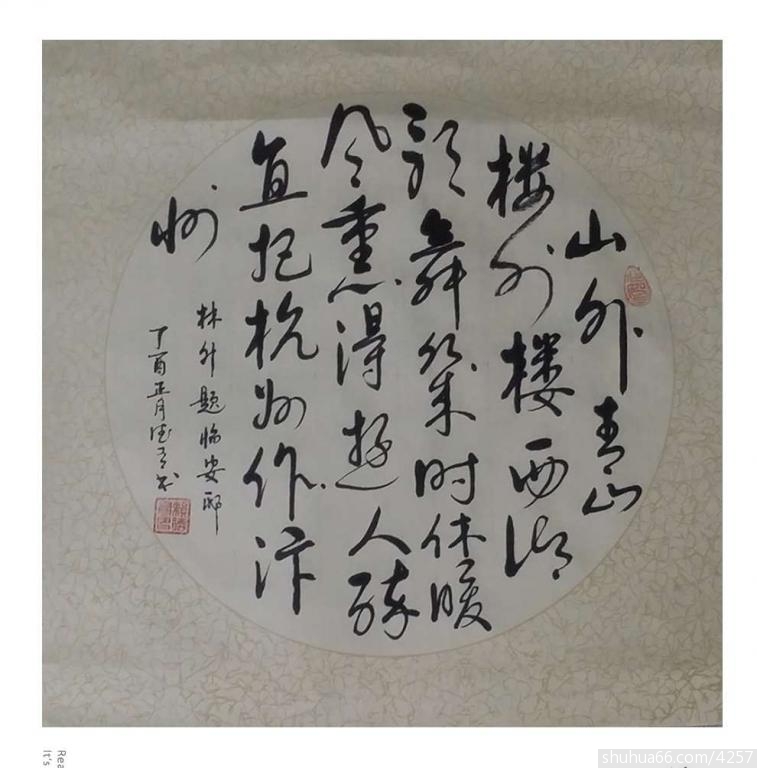 山外青山
楼外楼西湖
歌舞幾时休暖
风熏得遊人醉
直把杭州作汴
州
林升题临安邸
丁酉正月德书
shuhua66.com/4257
Rea
It's